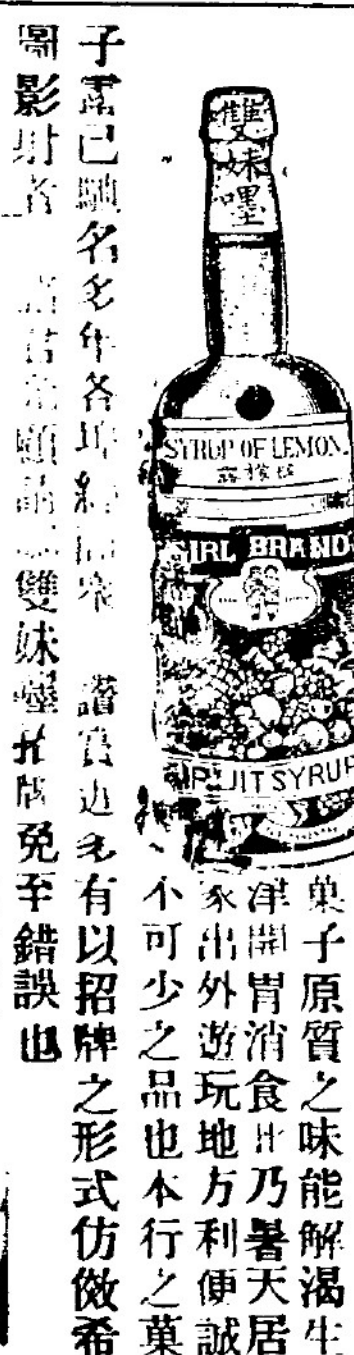 雙妹嚜
SYRUP OF LEMON.
露檬檸
GIRL BRAND
FRUIT SYRUP
菓子原質之味能解渴生
津開胃消食此乃暑天居
家出外遊玩地方利便誠
不可少之品也本行之菓
子露已馳名多年各埠紳商 讚賞近來有以招牌之形式仿傚希
圖影射者 顧 雙妹嚜招牌免至錯誤也